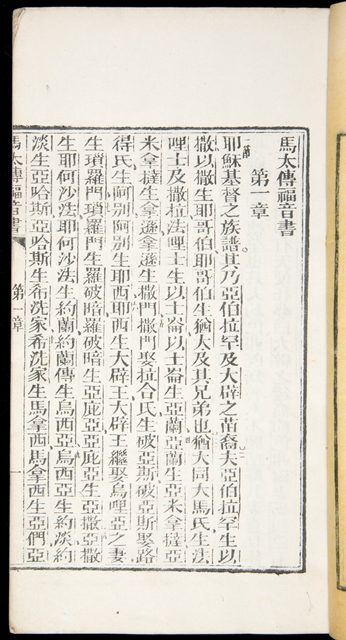 馬太傳福音書
第一章
耶穌基督之族譜其乃亞伯拉罕及大辟之苗裔夫亞伯拉罕生以
撒以撒生耶哥伯耶哥伯生猶大及其兄弟也猶大同大馬氏生法
哩士及撒拉法哩士生以士崙以士崙生亞蘭亞蘭生亞米拿撻亞
米拿撻生拿遜拿遜生撒門撒門娶拉合氏生破亞斯破亞斯娶路
得氏生阿別阿別生耶西耶西生大辟王大辟王繼娶烏哩亞之妻
生瑣羅門瑣羅門生羅破暗羅破暗生亞庇亞亞庇亞生亞撒亞撒
生耶何沙法耶何沙法生約蘭約蘭傳生烏西亞烏西亞生約淡約
淡生亞哈斯亞哈斯生希洗家希洗家生馬拿西馬拿西生亞們亞
馬太傳福音書
第一章